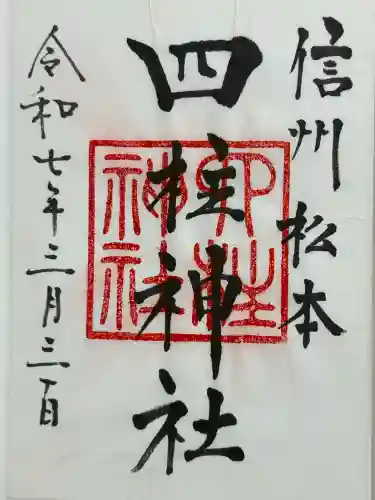 信州 松本
四柱神社
四柱神社
令和七年三月三日